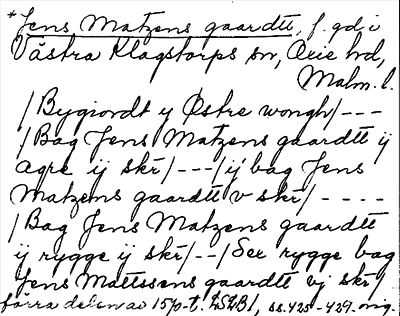 *Jens Matzens gaardtt, f. gd, i
Västra Klagstorps sn, Oxie hd,
Malm. l.
/Bygiordt y Østre wongh/---
/Bag Jens Matzens gaardtt ij
agre ij skr̄/---/ij bag Jens
Matzens gaardtt v skr̄/----
/Bag Jens Matzens gaardtt
ij rygge ij skr̄/--/See rygge bag
Jens Mattssens gaardtt vj skr̄/
förra delen av 1570-t. LSLB1, ss. 425-439. orig.